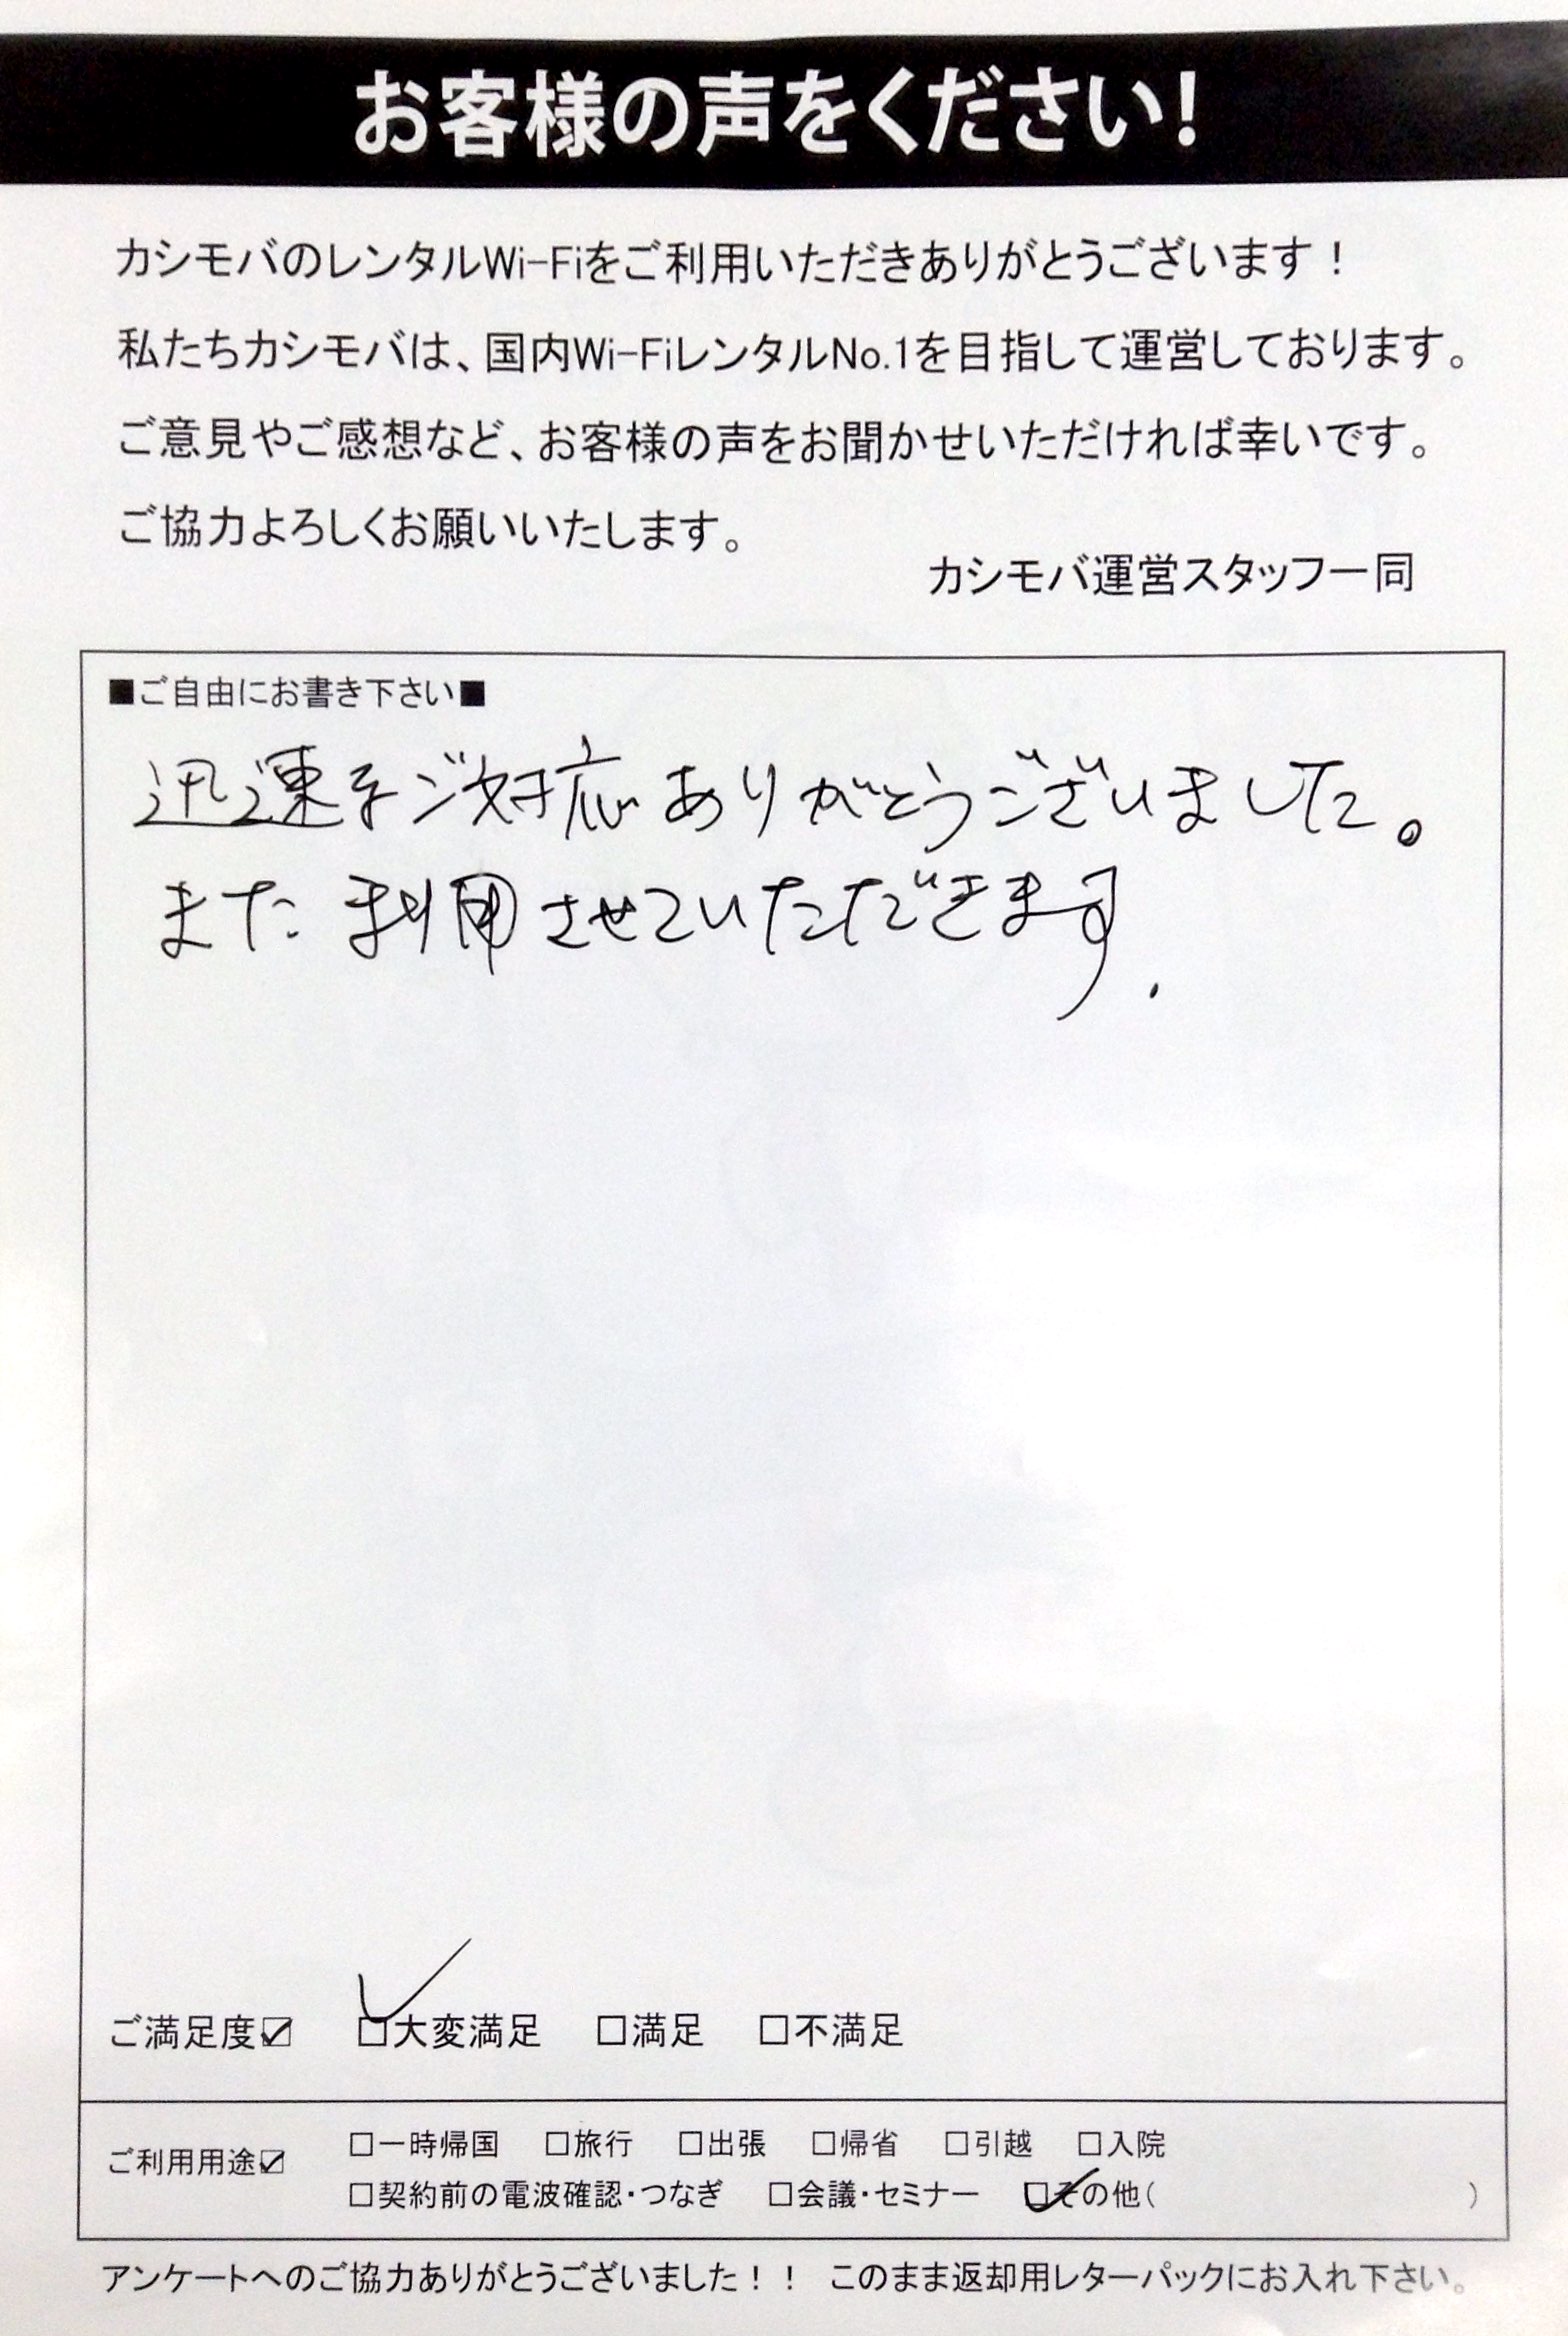 お客様の声をください!
カシモバのレンタルWi-Fiをご利用いただきありがとうございます！
私たちカシモバは、国内Wi-FiレンタルNo.1を目指して運営しております。
ご意見やご感想など、お客様の声をお聞かせいただければ幸いです。
ご協力よろしくお願いいたします。
カシモバ運営スタッフ一同
■ご自由にお書き下さい■
迅速なご対応ありがとうございました。
また利用させていただきます.
ご満足度☑ ☑大変満足 □満足 □不満足
ご利用用途☑ □一時帰国 □旅行 □出張 □帰省 □引越 □入院
□契約前の電波確認・つなぎ □会議・セミナー ☑その他( )
アンケートへのご協力ありがとうございました！！ このまま返却用レターパックにお入れ下さい。